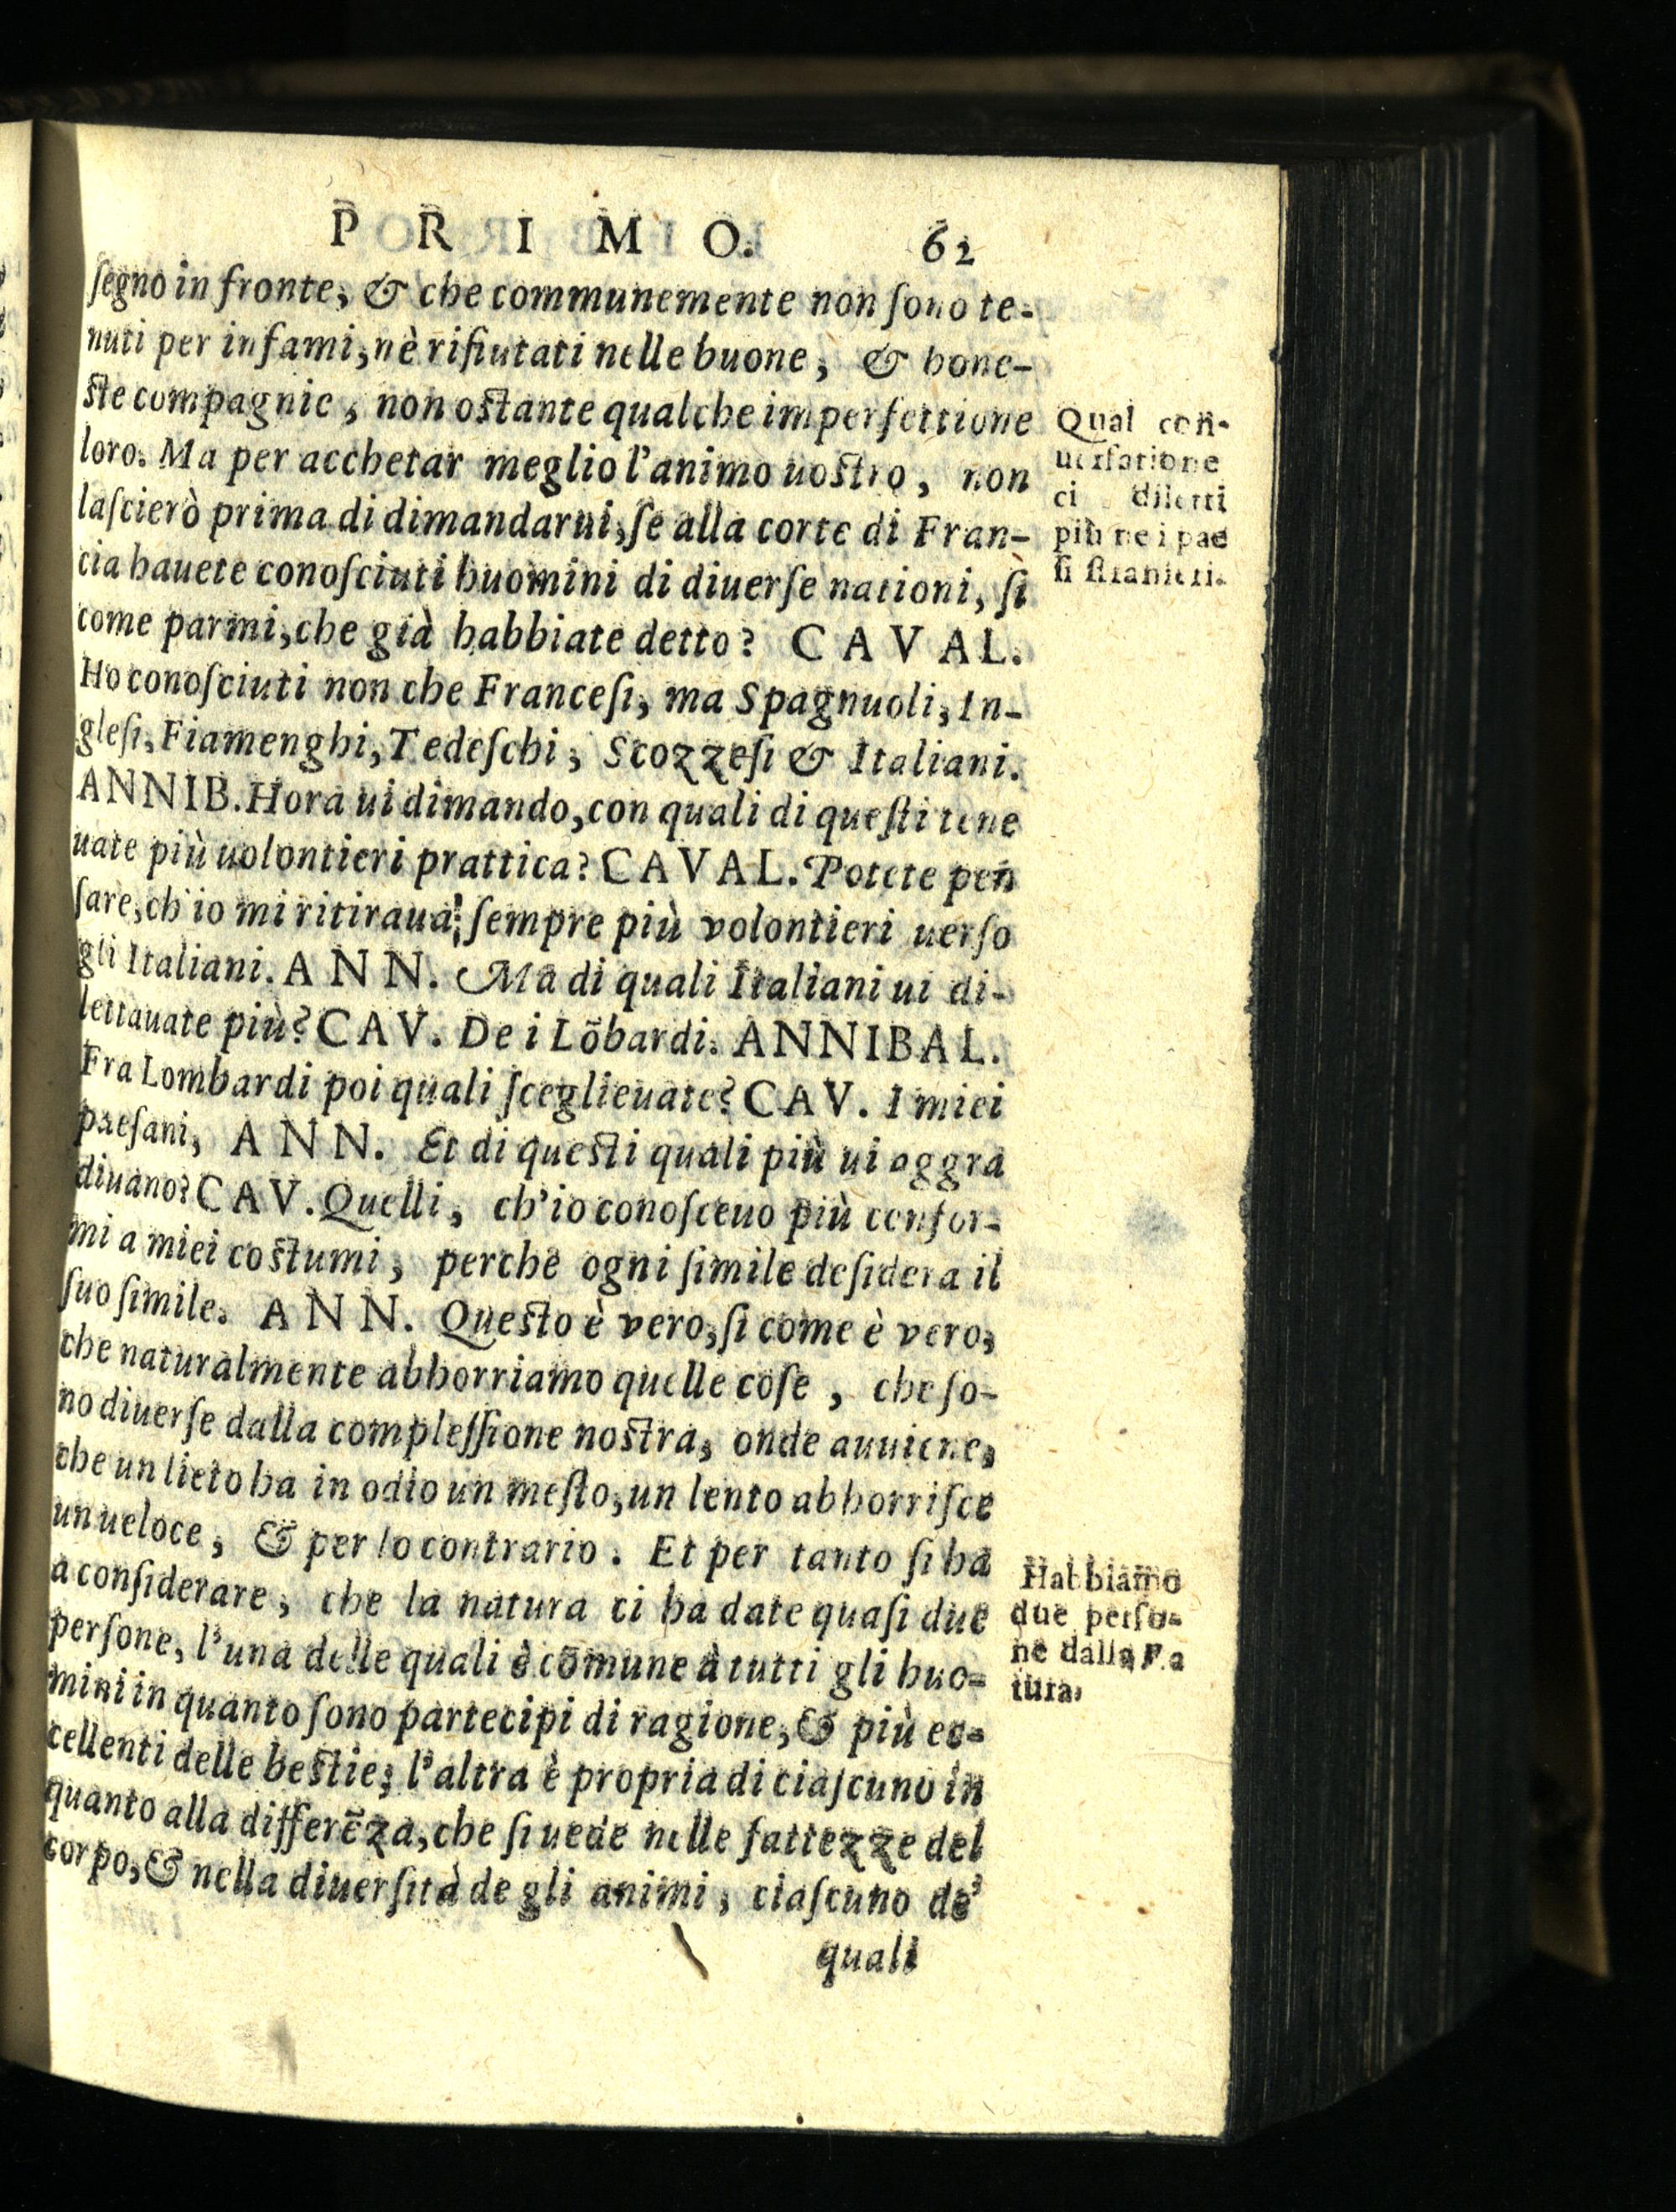 PRIMO. 62
ſegno in fronte, & che communemente non ſono te-
nuti per infami, nè rifiutati nelle buone, & hone-
ſte compagnie, non oſtante qualche imperfettione
loro. Ma per acchetar meglio l'animo uoſtro, non
laſcierò prima di dimandarui, ſe alla corte di Fran-
cia hauete conoſciuti huomini di diuerſe nationi, ſi
come parmi, che già habbiate detto? CAVAL.
Ho conoſciuti non che Franceſi, ma Spagnuoli, In-
gleſi, Fiamenghi, Tedeſchi, Scozzeſi & Italiani.
ANNIB. Hora ui dimando, con quali di queſti tene
uate più uolontieri prattica? CAVAL. Potete pen
ſare, ch'io mi ritiraua ſempre più volontieri uerſo
gli Italiani. ANN. Ma di quali Italiani ui di-
lettauate più? CAV. De i Lõbardi. ANNIBAL.
Fra Lombardi poi quali ſceglieuate? CAV. I miei
paeſani, ANN. Et di queſti quali più ui aggra
diuano? CAV. Quelli, ch'io conoſceuo più confor-
mi a miei coſtumi, perche ogni ſimile deſidera il
ſuo ſimile. ANN. Queſto è vero, ſi come è vero,
che naturalmente abhorriamo quelle coſe, che ſo-
no diuerſe dalla compleſſione noſtra, onde auuiene,
che un lieto ha in odio un meſto, un lento abhorriſce
un ueloce, & per lo contrario. Et per tanto ſi ha
a conſiderare, che la natura ci ha date quaſi due
perſone, l'una delle quali è cõmune à tutti gli huo-
mini in quanto ſono partecipi di ragione, & più ec-
cellenti delle beſtie; l'altra è propria di ciaſcuno in
quanto alla differẽza, che ſi uede nelle fattezze del
corpo, & nella diuerſità de gli animi, ciaſcuno de'
quali
Qual con-
uerſatione
ci diletti
più ne i pae
ſi ſtranieri.
Habbiamo
due perſo-
ne dalla na
tura.